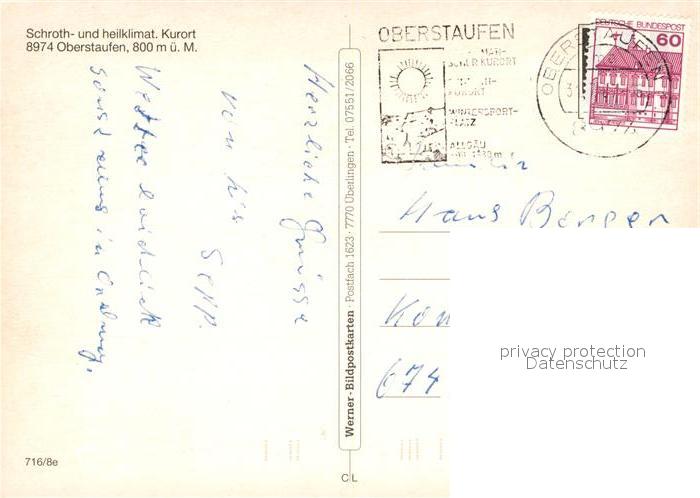 Schroth- und heilklimat. Kurort
8974 Oberstaufen, 800 m ü. M.
Herzliche Grüsse
von
Sepp.
Wetter
sonst alles in Ordnung.
716/8e
Werner-Bildpostkarten · Postfach 1623 · 7770 Überlingen · Tel. 07551/2066
C L
OBERSTAUFEN
KURORT
WINTERSPORT-
PLATZ
ALLGÄU
DEUTSCHE BUNDESPOST
60
OBERSTAUFEN
8974
Familie
Hans Berger
Kön
674
privacy protection
Datenschutz